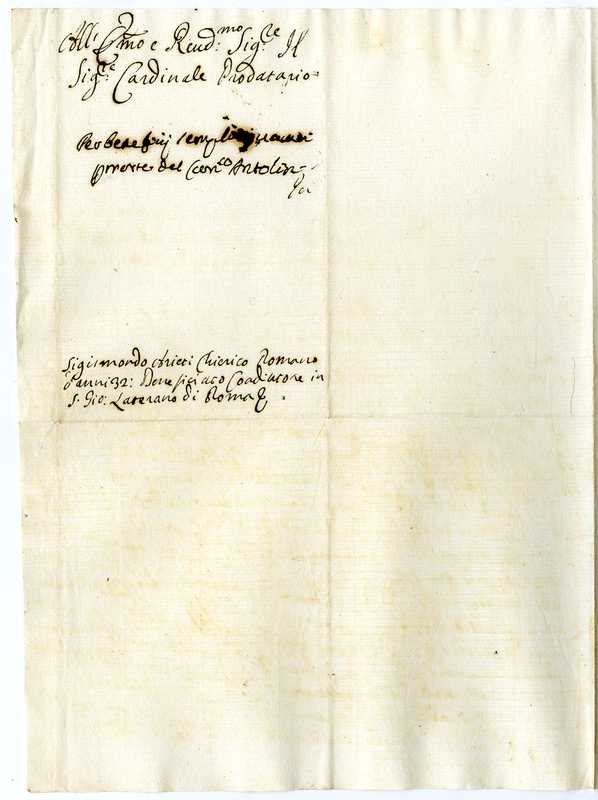 All Em̃o e Reud:mo Sig.re Il
Sig.re Cardinale Prodatario
Per beneficij semplici uacati
p morte del Can.co Antolin-
Sigismondo Chierico Romano
d'anni 32: Beneficiato Coadiutore in
S. Gio: Laterano di Roma